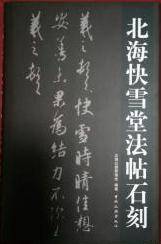 北海快雪堂法帖石刻
羲之頓首快雪時晴佳想
安善未果為結力不次王
羲之頓首